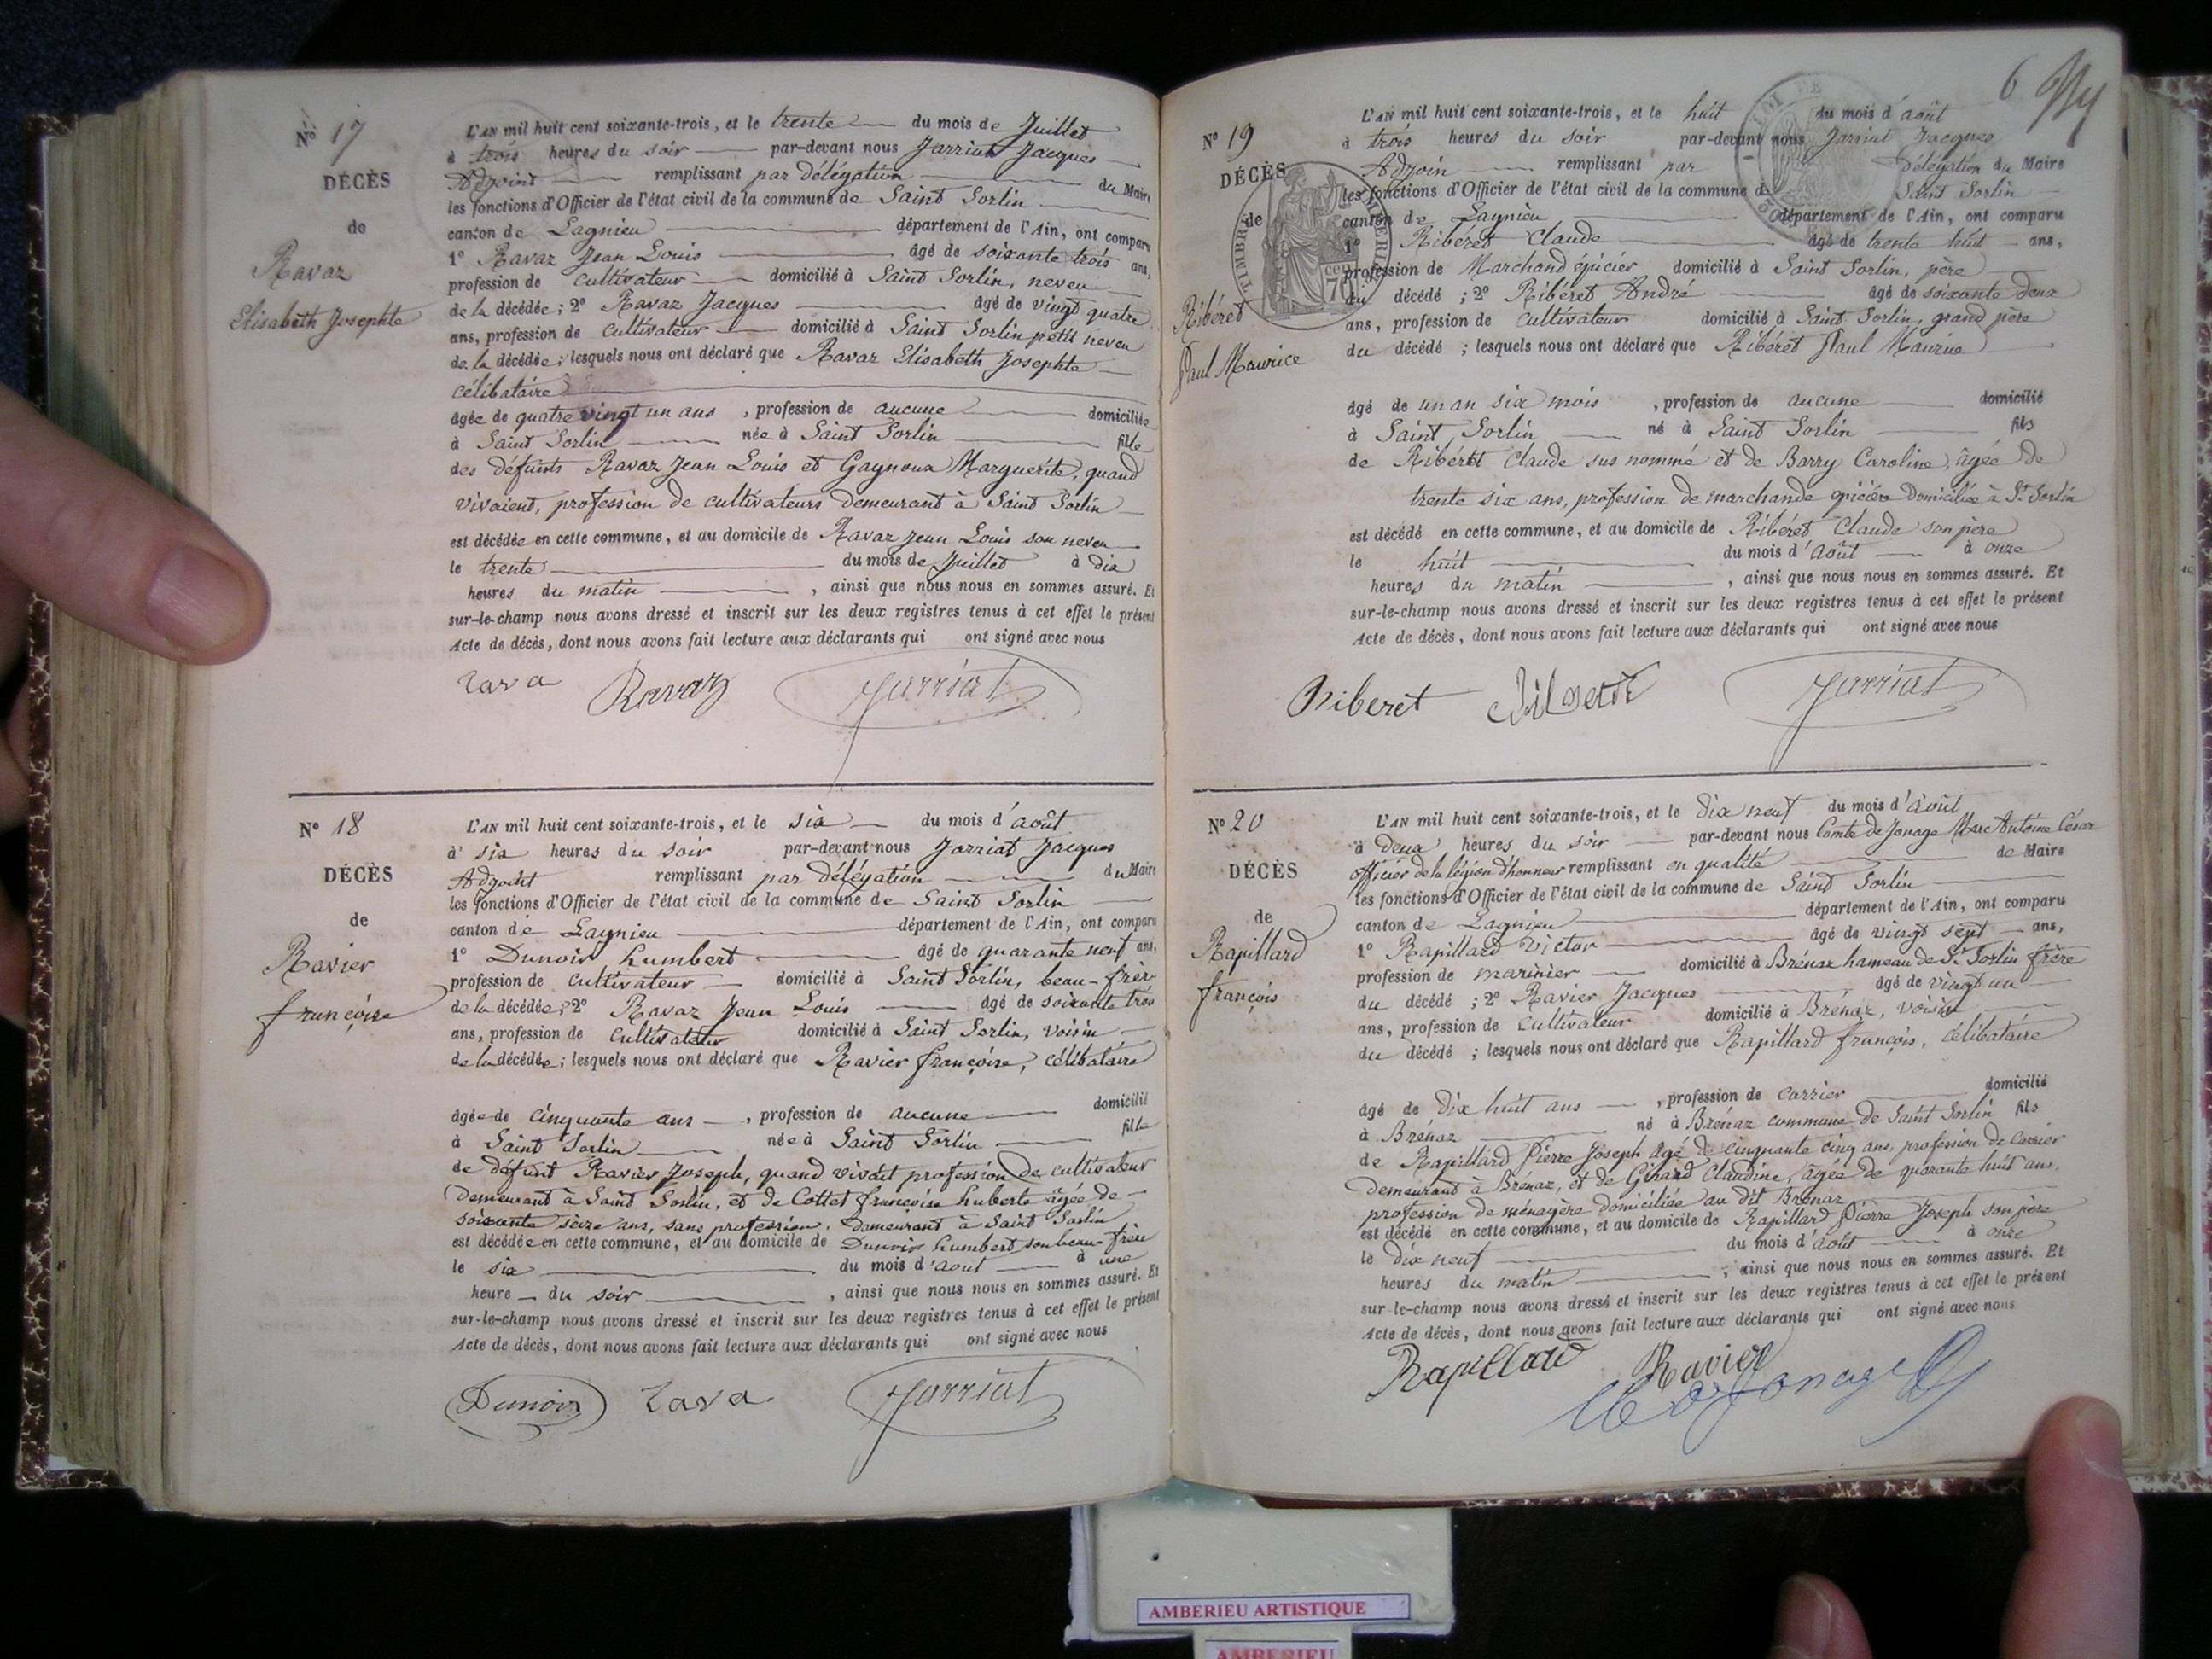 N° 17
DÉCÈS
de
Ravaz
Elisabeth Josephte
L'AN mil huit cent soixante-trois, et le trente du mois de Juillet
à trois heures du soir par-devant nous Jarriat Jacques
Adjoint remplissant par délégation du Maire
les fonctions d'Officier de l'état civil de la commune de Saint Sorlin
canton de Lagnieu département de l'Ain, ont comparu
1° Ravaz Jean Louis âgé de soixante trois ans,
profession de cultivateur domicilié à Saint Sorlin, neveu
de la décédée; 2° Ravaz Jacques âgé de vingt quatre
ans, profession de cultivateur domicilié à Saint Sorlin petit neveu
de la décédée; lesquels nous ont déclaré que Ravaz Elisabeth Josephte
célibataire
âgée de quatre vingt un ans, profession de aucune domiciliée
à Saint Sorlin née à Saint Sorlin fille
des défunts Ravaz Jean Louis et Gagnoux Marguerite, quand
vivaient, profession de cultivateurs demeurant à Saint Sorlin
est décédée en cette commune, et au domicile de Ravaz Jean Louis son neveu
le trente du mois de Juillet à dix
heures du matin, ainsi que nous nous en sommes assuré. Et
sur-le-champ nous avons dressé et inscrit sur les deux registres tenus à cet effet le présent
Acte de décès, dont nous avons fait lecture aux déclarants qui ont signé avec nous
rava Ravaz Jarriat
N° 18
DÉCÈS
de
Ravier
françoise
L'AN mil huit cent soixante-trois, et le six du mois d'août
à six heures du soir par-devant nous Jarriat Jacques
Adjoint remplissant par délégation du Maire
les fonctions d'Officier de l'état civil de la commune de Saint Sorlin
canton de Lagnieu département de l'Ain, ont comparu
1° Dunoir humbert âgé de quarante neuf ans,
profession de cultivateur domicilié à Saint Sorlin, beau-frèr
de la décédée; 2° Ravaz Jean Louis âgé de soixante trois
ans, profession de cultivateur domicilié à Saint Sorlin, voisin
de la décédée; lesquels nous ont déclaré que Ravier françoise, célibataire
âgée de cinquante ans, profession de aucune domicilié
à Saint Sorlin née à Saint Sorlin fille
de défunt Ravier Joseph, quand vivait profession de cultivateur
demeurant à Saint Sorlin, et de Cottet francoise huberte âgée de
soixante seize ans, sans profession, demeurant à Saint Sorlin
est décédée en cette commune, et au domicile de Dunoir humbert son beau-frère
le six du mois d'aout à une
heure du soir, ainsi que nous nous en sommes assuré. Et
sur-le-champ nous avons dressé et inscrit sur les deux registres tenus à cet effet le présent
Acte de décès, dont nous avons fait lecture aux déclarants qui ont signé avec nous
Dunoir rava Jarriat
6
N° 19
DÉCÈS
de
Ribéret
Paul Maurice
TIMBRE
L'AN mil huit cent soixante-trois, et le huit du mois d'août
à trois heures du soir par-devant nous Jarriat Jacques
Adjoin remplissant par Délégation du Maire
les fonctions d'Officier de l'état civil de la commune de Saint Sorlin
canton de Lagnieu département de l'Ain, ont comparu
1° Ribéret Claude âgé de trente huit ans,
profession de Marchand épicier domicilié à Saint Sorlin, père
du décédé; 2° Ribéret André âgé de soixante deux
ans, profession de cultivateur domicilié à Saint Sorlin, grand père
du décédé; lesquels nous ont déclaré que Ribéret Paul Maurice
âgé de un an six mois, profession de aucune domicilié
à Saint Sorlin né à Saint Sorlin fils
de Ribéret Claude sus nommé et de Barry Caroline, âgée de
trente six ans, profession de marchande épicière domiciliée à St Sorlin
est décédé en cette commune, et au domicile de Ribéret Claude son père
le huit du mois d'août à onze
heures du matin, ainsi que nous nous en sommes assuré. Et
sur-le-champ nous avons dressé et inscrit sur les deux registres tenus à cet effet le présent
Acte de décès, dont nous avons fait lecture aux déclarants qui ont signé avec nous
Riberet Jarriat
N° 20
DÉCÈS
de
Rapillard
françois
L'AN mil huit cent soixante-trois, et le dix neuf du mois d'août
à deux heures du soir par-devant nous Comte de Jonage Marc Antoine César
officier de la légion d'honneur remplissant en qualité de Maire
les fonctions d'Officier de l'état civil de la commune de Saint Sorlin
canton de Lagnieu département de l'Ain, ont comparu
1° Rapillard Victor âgé de vingt sept ans,
profession de marinier domicilié à Brénaz hameau de St Sorlin frère
du décédé; 2° Ravier Jacques âgé de vingt un
ans, profession de cultivateur domicilié à Brénaz, voisin
du décédé; lesquels nous ont déclaré que Rapillard françois, célibataire
âgé de dix huit ans, profession de carrier domicilié
à Brénaz né à Brénaz commune de Saint Sorlin fils
de Rapillard Pierre Joseph âgé de cinquante cinq ans, profession de carrier
demeurant à Brénaz, et de Girard Claudine, âgée de quarante huit ans,
profession de ménagère domiciliée au dit Brénaz
est décédé en cette commune, et au domicile de Rapillard Pierre Joseph son père
le dix neuf du mois d'août à onze
heures du matin, ainsi que nous nous en sommes assuré. Et
sur-le-champ nous avons dressé et inscrit sur les deux registres tenus à cet effet le présent
Acte de décès, dont nous avons fait lecture aux déclarants qui ont signé avec nous
Rapillard Ravier
AMBERIEU ARTISTIQUE
AMBERIEU